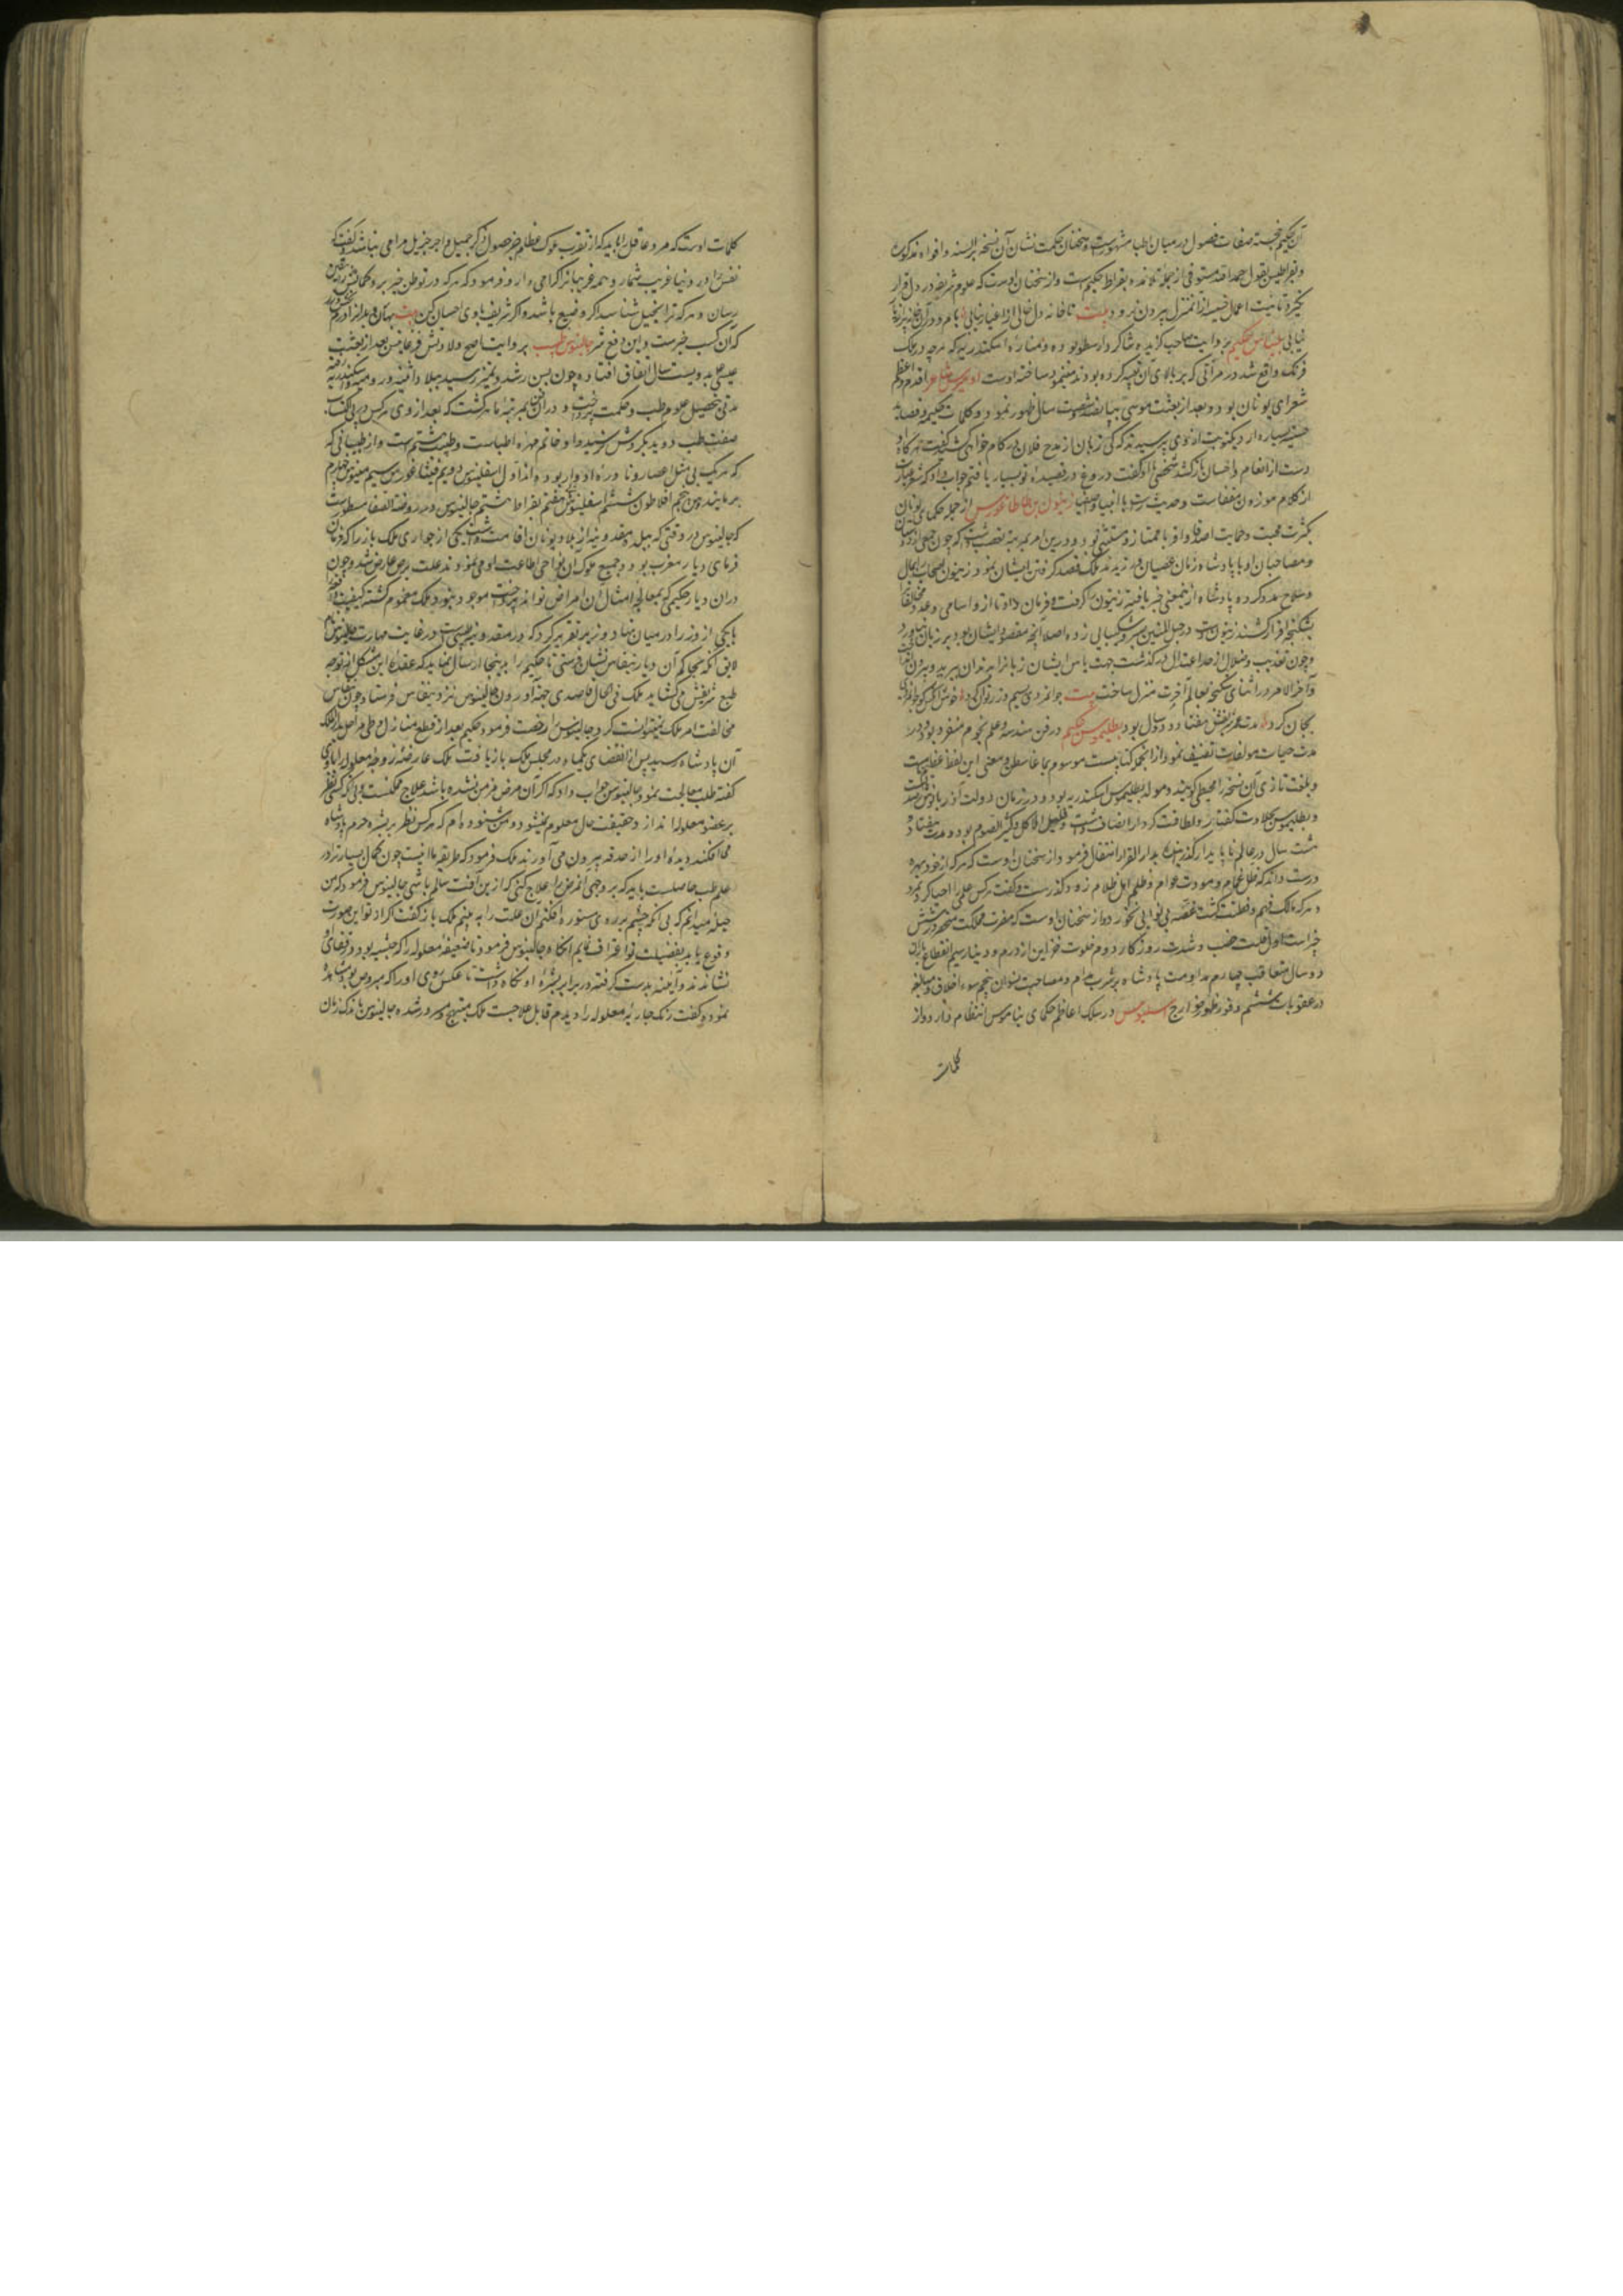 آن حکیم خجسته صفات فصول در میان اطبا مشهورست و سخنان حکمت نشان آن نسخه بر السنه و افواه مذکور
و بقراطیس بقول حمد الله مستوفی از جمله تلامذه بقراط حکیم است و از سخنان اوست که علوم شریفه در دل قرار
نگیرد تا نیت اعمال خسیسه از آن منزل بیرون نرود بیت تا خانه دل خالی از اغیار نیابی بام و در آن خانه پر از
نیابی بلیناس حکیم بروایت صاحب گزیده شاگرد ارسطو بوده و مناره اسکندریه که هرچه در ملک
فرنگ واقع شد در مرآتی که بر بالای آن تعبیه کرده بودند می‌نمود ساخته اوست اومیرس شاعر اقدم و اعظم
شعرای یونان بود و بعد از بعثت موسی بپانصد و شصت سال ظهور نمود و کلمات حکیمه و قصاید
حسنه بسیار دارد یکنوبت از وی پرسیدند که کی زبان از مدح فلان در کام خواهی کشید گفت هرگاه او
دست از انعام و احسان باز کشد شخصی او را گفت دروغ در قصیده تو بسیار یافتم جواب داد که شعر عبارت
از کلام موزون مقفاست و حدیث راست با انبیا و اصفیا زینون بن طالطاغورس از جمله حکمای یونان
بکثرت محبت و حمایت اصدقا و اقربا ممتاز و مستثنی بود و درین امر بمرتبه تعصب داشت که چون جمعی از دوستان
و مصاحبان او با پادشاه زمان عصیان ورزیدند و ملک قصد گرفتن ایشان نمود زینون اصحاب را بمال
و سلاح مدد کرده پادشاه ازین معنی خبر یافته زینون را گرفت و فرمان داد تا از و اسامی و عدد مخالفان
بشکنجه اقرار کشند زینون دست در حبل المتین صبر و شکیبایی زده اصلا آنچه مقصود ایشان بود بر زبان نیاورد
و چون تعذیب و ضلال از حد اعتدال در گذشت جهت یاس ایشان زبان را بدندان برید و بیرون انداخت
و آخر الامر در اثنای شکنجه بعالم آخرت منزل ساخت بیت جوانمردی سیم و زر توان کرد خوش آنکس کو جوانمردی
بجان کرد مدت عمر زینون هفتاد و دو سال بود بطلیموس حکیم در فن هندسه و علم نجوم منفرد بود و در
مدت حیات مولفات تصنیف نمود از آنجمله کتابیست موسوم بماغاسطن و معنی این لفظ
و بلغت تازی آن نسخه را مجسطی گویند و مولد بطلیموس اسکندریه بود و در زمان دولت
و بطلیموس بحلاوت گفتار و لطافت کردار اتصاف داشت و قلیل الاکل و کثیر الصوم بود و مدت هفتاد و
هشت سال در عالم ناپایدار گذرانیده بدار القرار انتقال فرمود از سخنان اوست که هرکه از خود بهره
درست داند که ظل غمام و مودت عوام و ظلم اهل ظلام زود گذرست و گفت هرکس علمی را احیا کرد نمرد
و هرکه مالک فهم و فطنت گشت غصه بی‌نوایی نخورد و از سخنان اوست که مضرت مملکت منحصر در شش
چیز است اول قلت خصب و شدت روزگار دوم خلو خزاین از درم و دینار سیم انقطاع باران
دو سال متعاقب چهارم مداومت پادشاه بر شرب مدام و مصاحبت نسوان پنجم سوء اخلاق و مبالغه
در عقوبات ششم وفور ظهور خوارج در سلک اعاظم حکمای یونان انتظام دارد و از
کلمات
کلمات اوست که مرد عاقل را باید که از تقرب ملوک عظام جز حصول ذکر جمیل و اجر جزیل مرامی نباشد و گفت که
نفس را در دنیا غریب شمار و همه غریبان را گرامی دار و فرمود که هرکه در توطن خیر برد گمان
رسان و هرکه ترا بخیل شناسد اگر وضیع باشد و اگر شریف با وی احسان کن بیت
که آن کسب خیرست و این دفع شر جالینوس طبیب بروایت اصح ولادتش در فرغامس بعد از بعثت
عیسی علیه بدویست سال اتفاق افتاده چون بسن رشد و تمیز رسید ببلاد اثینه و رومیه و اسکندریه رفته
مدتی بتحصیل علوم طب و حکمت پرداخت و در آن فن بمرتبه ماهر گشت که بعد از وی هرکس در پی اکتساب
صفت طب دوید بگردش نرسید و او خاتم مهره اطباست و طبیب هشتم است و از طبیبانی که
که هر یک بی مثل اعصار و نادره ادوار بوده‌اند اول اسقلینوس دویم غورس سیم مینوس چهارم
برمانیدس پنجم افلاطون ششم اسقلینوس هفتم بقراط هشتم جالینوس و در روضة الصفا مسطورست
که جالینوس در وقتی که ببلده مقدونیه از بلاد یونان اقامت داشت یکی از جواری ملک باز را که فرمان
فرمای دیار مغرب بود و جمیع ملوک آن نواحی اطاعت او می‌نمودند علت برص عارض شد و چون
در آن دیار حکیمی که بمعالجه امثال آن امراض تواند پرداخت موجود نبود ملک مغموم گشته کیفیت واقعه
با یکی از وزرا در میان نهاد وزیر تقریر کرد که در مقدونیه طبیبی است در غایت مهارت جالینوس نام
لایق آنکه بحاکم آن دیار نشان فرستی تا حکیم را بدینجا ارسال نماید که عقده این مشکل از توجه
طبع شریفش می‌گشاید ملک فی الحال قاصدی جهة آوردن جالینوس نزد فرستاد چون
مخالفت امر ملک نمیتوانست کرد جالینوس را رخصت فرمود حکیم بعد از قطع منازل و طی مراحل بدار الملک
آن پادشاه رسید پس از انقضای یکماه در مجلس ملک باز یافت ملک عارضه زوجه معلوله را باوی
گفته طلب معالجت نمود جالینوس جواب داد که اگر آن مرض مزمن نشده باشد علاج ممکنست ولی تا کسی نظر
بر عضو معلوله اندازد حقیقت حال معلوم نمیشود و من شنوده‌ام که هرکس نظر بر بشره حرم پادشاه
می‌افکند دیده او را از حدقه بیرون می‌آورند ملک فرمود که طریقه ما اینست چون کمال بسیار ترا در
علم طب حاصلست باید که بر وجهی آن مرض را علاج کنی که ازین آفت سالم باشی جالینوس فرمود که من
حیله میدانم که بی آنکه چشم بر روی مستوره افکنم آن علت را ببینم ملک باز گفت اگر از تو این صورت
وقوع یابد بفضیلت تو اعتراف نمایم آنگاه جالینوس فرمود تا ضعیفه معلوله را که حبشیه بود در قفای او
نشاندند و آینه بدست گرفته در برابر بشره او نگاه داشت تا عکس روی او را که مبروص بود مشاهده
نموده گفت رنگ جاریه معلوله را دیدم قابل علاجست ملک مبتهج و مسرور شده جالینوس باندک زمان